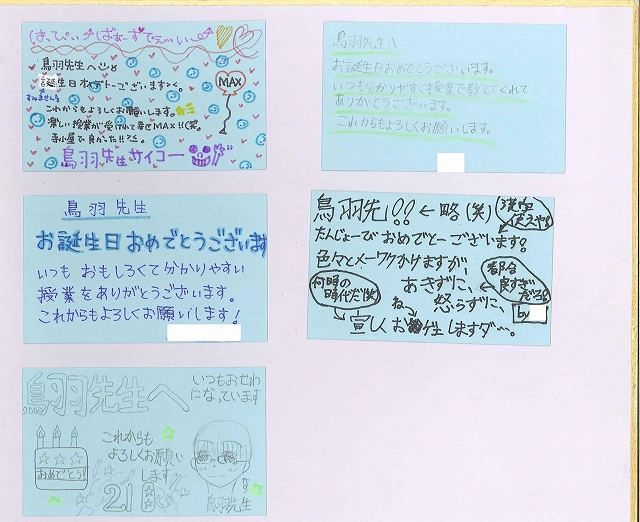 はっぴぃばぁすでぇーぃ
鳥羽先生へ
誕生日オメデトーございます><。
すみません
これからもよろしくお願いします。
楽しい授業が受けれて幸せMAX!!(笑。
寺小屋で良かった!!
鳥羽先生サイコー
MAX
鳥羽先生へ
お誕生日おめでとうございます。
いつも分かりやすく授業で教えてくれて
ありがとうございます。
これからもよろしくお願いします。
鳥羽先生
お誕生日おめでとうございます
いつもおもしろくて分かりやすい
授業をありがとうございます。
これからもよろしくお願いします!
鳥羽先!!←略(笑)
漢字
使えや!!
たんじょーびおめでとーございます!
色々とメーワクかけますが、
あきずに、
怒らずに、
何時の
時代だ(笑)
都合
良すぎ
だろ!!
by
宜しくお
ね
しますダ〜。
鳥羽先生へ
いつもおせわ
になっています
これからも
よろしくお願い
します
おめでとう!
21
鳥羽先生
です